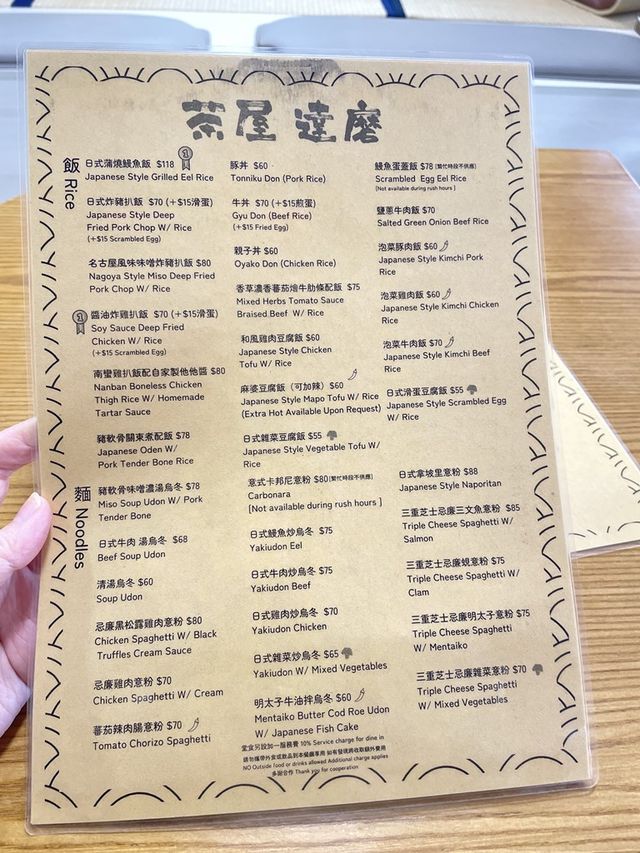 茶屋 達磨
飯 Rice
日式蒲燒鰻魚飯 $118
Japanese Style Grilled Eel Rice
日式炸豬扒飯 $70 (+$15滑蛋)
Japanese Style Deep
Fried Pork Chop W/ Rice
(+$15 Scrambled Egg)
名古屋風味味噌炸豬扒飯 $80
Nagoya Style Miso Deep Fried
Pork Chop W/ Rice
醬油炸雞扒飯 $70 (+$15滑蛋)
Soy Sauce Deep Fried
Chicken W/ Rice
(+$15 Scrambled Egg)
南蠻雞扒飯配自家製他他醬 $80
Nanban Boneless Chicken
Thigh Rice W/ Homemade
Tartar Sauce
豬軟骨關東煮配飯 $78
Japanese Oden W/
Pork Tender Bone Rice
豚丼 $60
Tonniku Don (Pork Rice)
牛丼 $70 (+$15煎蛋)
Gyu Don (Beef Rice)
(+$15 Fried Egg)
親子丼 $60
Oyako Don (Chicken Rice)
香草濃香蕃茄燴牛肋條配飯 $75
Mixed Herbs Tomato Sauce
Braised.Beef W/ Rice
和風雞肉豆腐飯 $60
Japanese Style Chicken
Tofu W/ Rice
麻婆豆腐飯（可加辣）$60
Japanese Style Mapo Tofu W/ Rice
(Extra Hot Available Upon Request)
日式雜菜豆腐飯 $55
Japanese Style Vegetable Tofu W/
Rice
鰻魚蛋蓋飯 $78 [繁忙時段不供應]
Scrambled Egg Eel Rice
[Not available during rush hours ]
鹽蔥牛肉飯 $70
Salted Green Onion Beef Rice
泡菜豚肉飯 $60
Japanese Style Kimchi Pork
Rice
泡菜雞肉飯 $60
Japanese Style Kimchi Chicken
Rice
泡菜牛肉飯 $70
Japanese Style Kimchi Beef
Rice
日式滑蛋豆腐飯 $55
Japanese Style Scrambled Egg
W/ Rice
麵 Noodles
豬軟骨味噌濃湯烏冬 $78
Miso Soup Udon W/ Pork
Tender Bone
日式牛肉 湯烏冬 $68
Beef Soup Udon
清湯烏冬 $60
Soup Udon
忌廉黑松露雞肉意粉 $80
Chicken Spaghetti W/ Black
Truffles Cream Sauce
忌廉雞肉意粉 $70
Chicken Spaghetti W/ Cream
蕃茄辣肉腸意粉 $70
Tomato Chorizo Spaghetti
意式卡邦尼意粉 $80[繁忙時段不供應]
Carbonara
[Not available during rush hours ]
日式鰻魚炒烏冬 $75
Yakiudon Eel
日式牛肉炒烏冬 $75
Yakiudon Beef
日式雞肉炒烏冬 $70
Yakiudon Chicken
日式雜菜炒烏冬 $65
Yakiudon W/ Mixed Vegetables
明太子牛油拌烏冬 $60
Mentaiko Butter Cod Roe Udon
W/ Japanese Fish Cake
日式拿坡里意粉 $88
Japanese Style Naporitan
三重芝士忌廉三文魚意粉 $85
Triple Cheese Spaghetti W/
Salmon
三重芝士忌廉蜆意粉 $75
Triple Cheese Spaghetti W/
Clam
三重芝士忌廉明太子意粉 $75
Triple Cheese Spaghetti
W/ Mentaiko
三重芝士忌廉雜菜意粉 $70
Triple Cheese Spaghetti
W/ Mixed Vegetables
堂食另設加一服務費 10% Service charge for dine in
請勿攜帶外食或飲品到本餐廳享用 如有發現將收取額外費用
NO Outside food or drinks allowed Additional charge applies
多謝合作 Thank you for cooperation